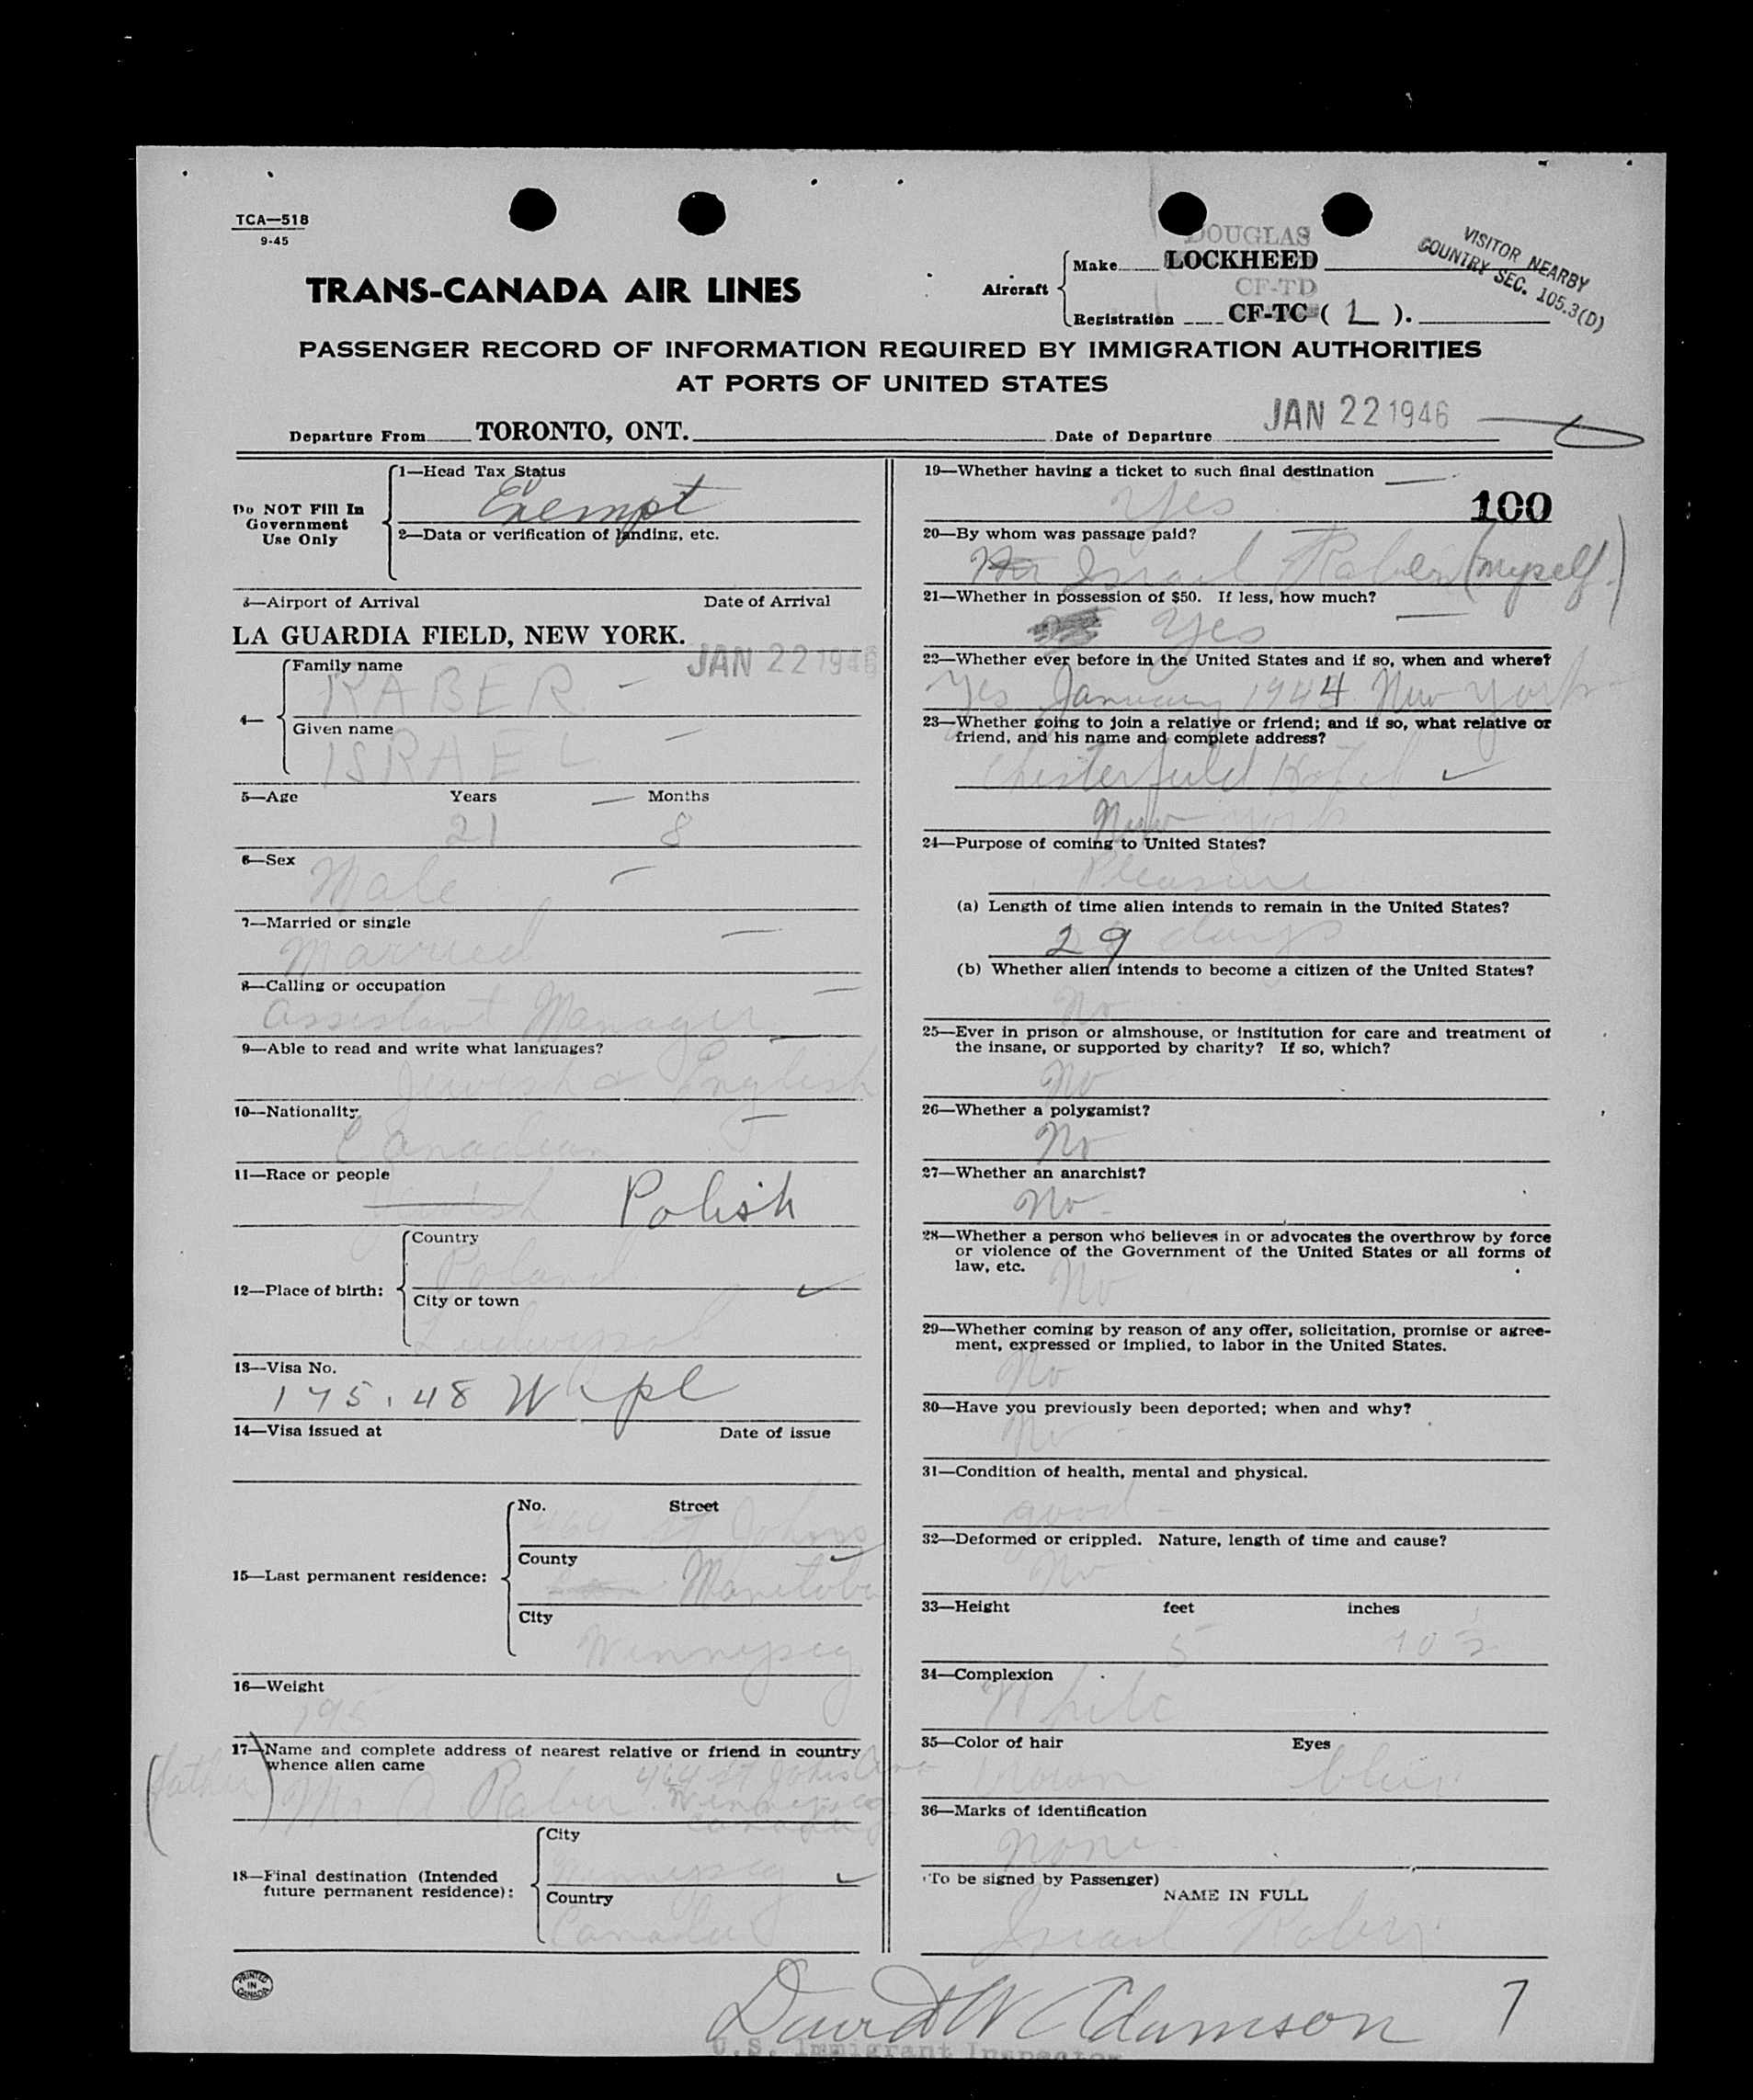 TCA—518
9-45
TRANS-CANADA AIR LINES
Aircraft
DOUGLAS
Make LOCKHEED
CF-TD
Registration CF-TC ( 1 ).
VISITOR NEARBY
COUNTRY SEC. 105.3(D)
PASSENGER RECORD OF INFORMATION REQUIRED BY IMMIGRATION AUTHORITIES
AT PORTS OF UNITED STATES
Departure From TORONTO, ONT. Date of Departure JAN 22 1946
Do NOT Fill In
Government
Use Only
1—Head Tax Status
Exempt
2—Data or verification of landing, etc.
3—Airport of Arrival Date of Arrival
LA GUARDIA FIELD, NEW YORK. JAN 22 1946
4—
Family name
RABER
Given name
ISRAEL
5—Age Years Months
21 8
6—Sex
Male
7—Married or single
Married
8—Calling or occupation
Assistant Manager
9—Able to read and write what languages?
Jewish & English
10—Nationality
Canadian
11—Race or people
Jewish Polish
12—Place of birth:
Country
Poland
City or town
Ludwipol
13—Visa No.
175.48 Wnpl
14—Visa issued at Date of issue
15—Last permanent residence:
No. Street
464 St Johns
County
Manitoba
City
Winnipeg
16—Weight
195
17—Name and complete address of nearest relative or friend in country
whence alien came
(father) Mr A Raber 464 St Johns Ave
Winnipeg
Canada
18—Final destination (Intended
future permanent residence):
City
Winnipeg
Country
Canada
PRINTED
IN
CANADA
19—Whether having a ticket to such final destination
Yes
100
20—By whom was passage paid?
Israel Raber (myself)
21—Whether in possession of $50. If less, how much?
Yes
22—Whether ever before in the United States and if so, when and where?
Yes January 1944 New York
23—Whether going to join a relative or friend; and if so, what relative or
friend, and his name and complete address?
Chesterfield Hotel
New York
24—Purpose of coming to United States?
Pleasure
(a) Length of time alien intends to remain in the United States?
29 days
(b) Whether alien intends to become a citizen of the United States?
No
25—Ever in prison or almshouse, or institution for care and treatment of
the insane, or supported by charity? If so, which?
No
26—Whether a polygamist?
No
27—Whether an anarchist?
No
28—Whether a person who believes in or advocates the overthrow by force
or violence of the Government of the United States or all forms of
law, etc.
No
29—Whether coming by reason of any offer, solicitation, promise or agree-
ment, expressed or implied, to labor in the United States.
No
30—Have you previously been deported; when and why?
No
31—Condition of health, mental and physical.
good
32—Deformed or crippled. Nature, length of time and cause?
No
33—Height feet inches
5 10 1/2
34—Complexion
White
35—Color of hair Eyes
brown blue
36—Marks of identification
None
(To be signed by Passenger)
NAME IN FULL
Israel Raber
David W Adamson 7
U.S. Immigrant Inspector